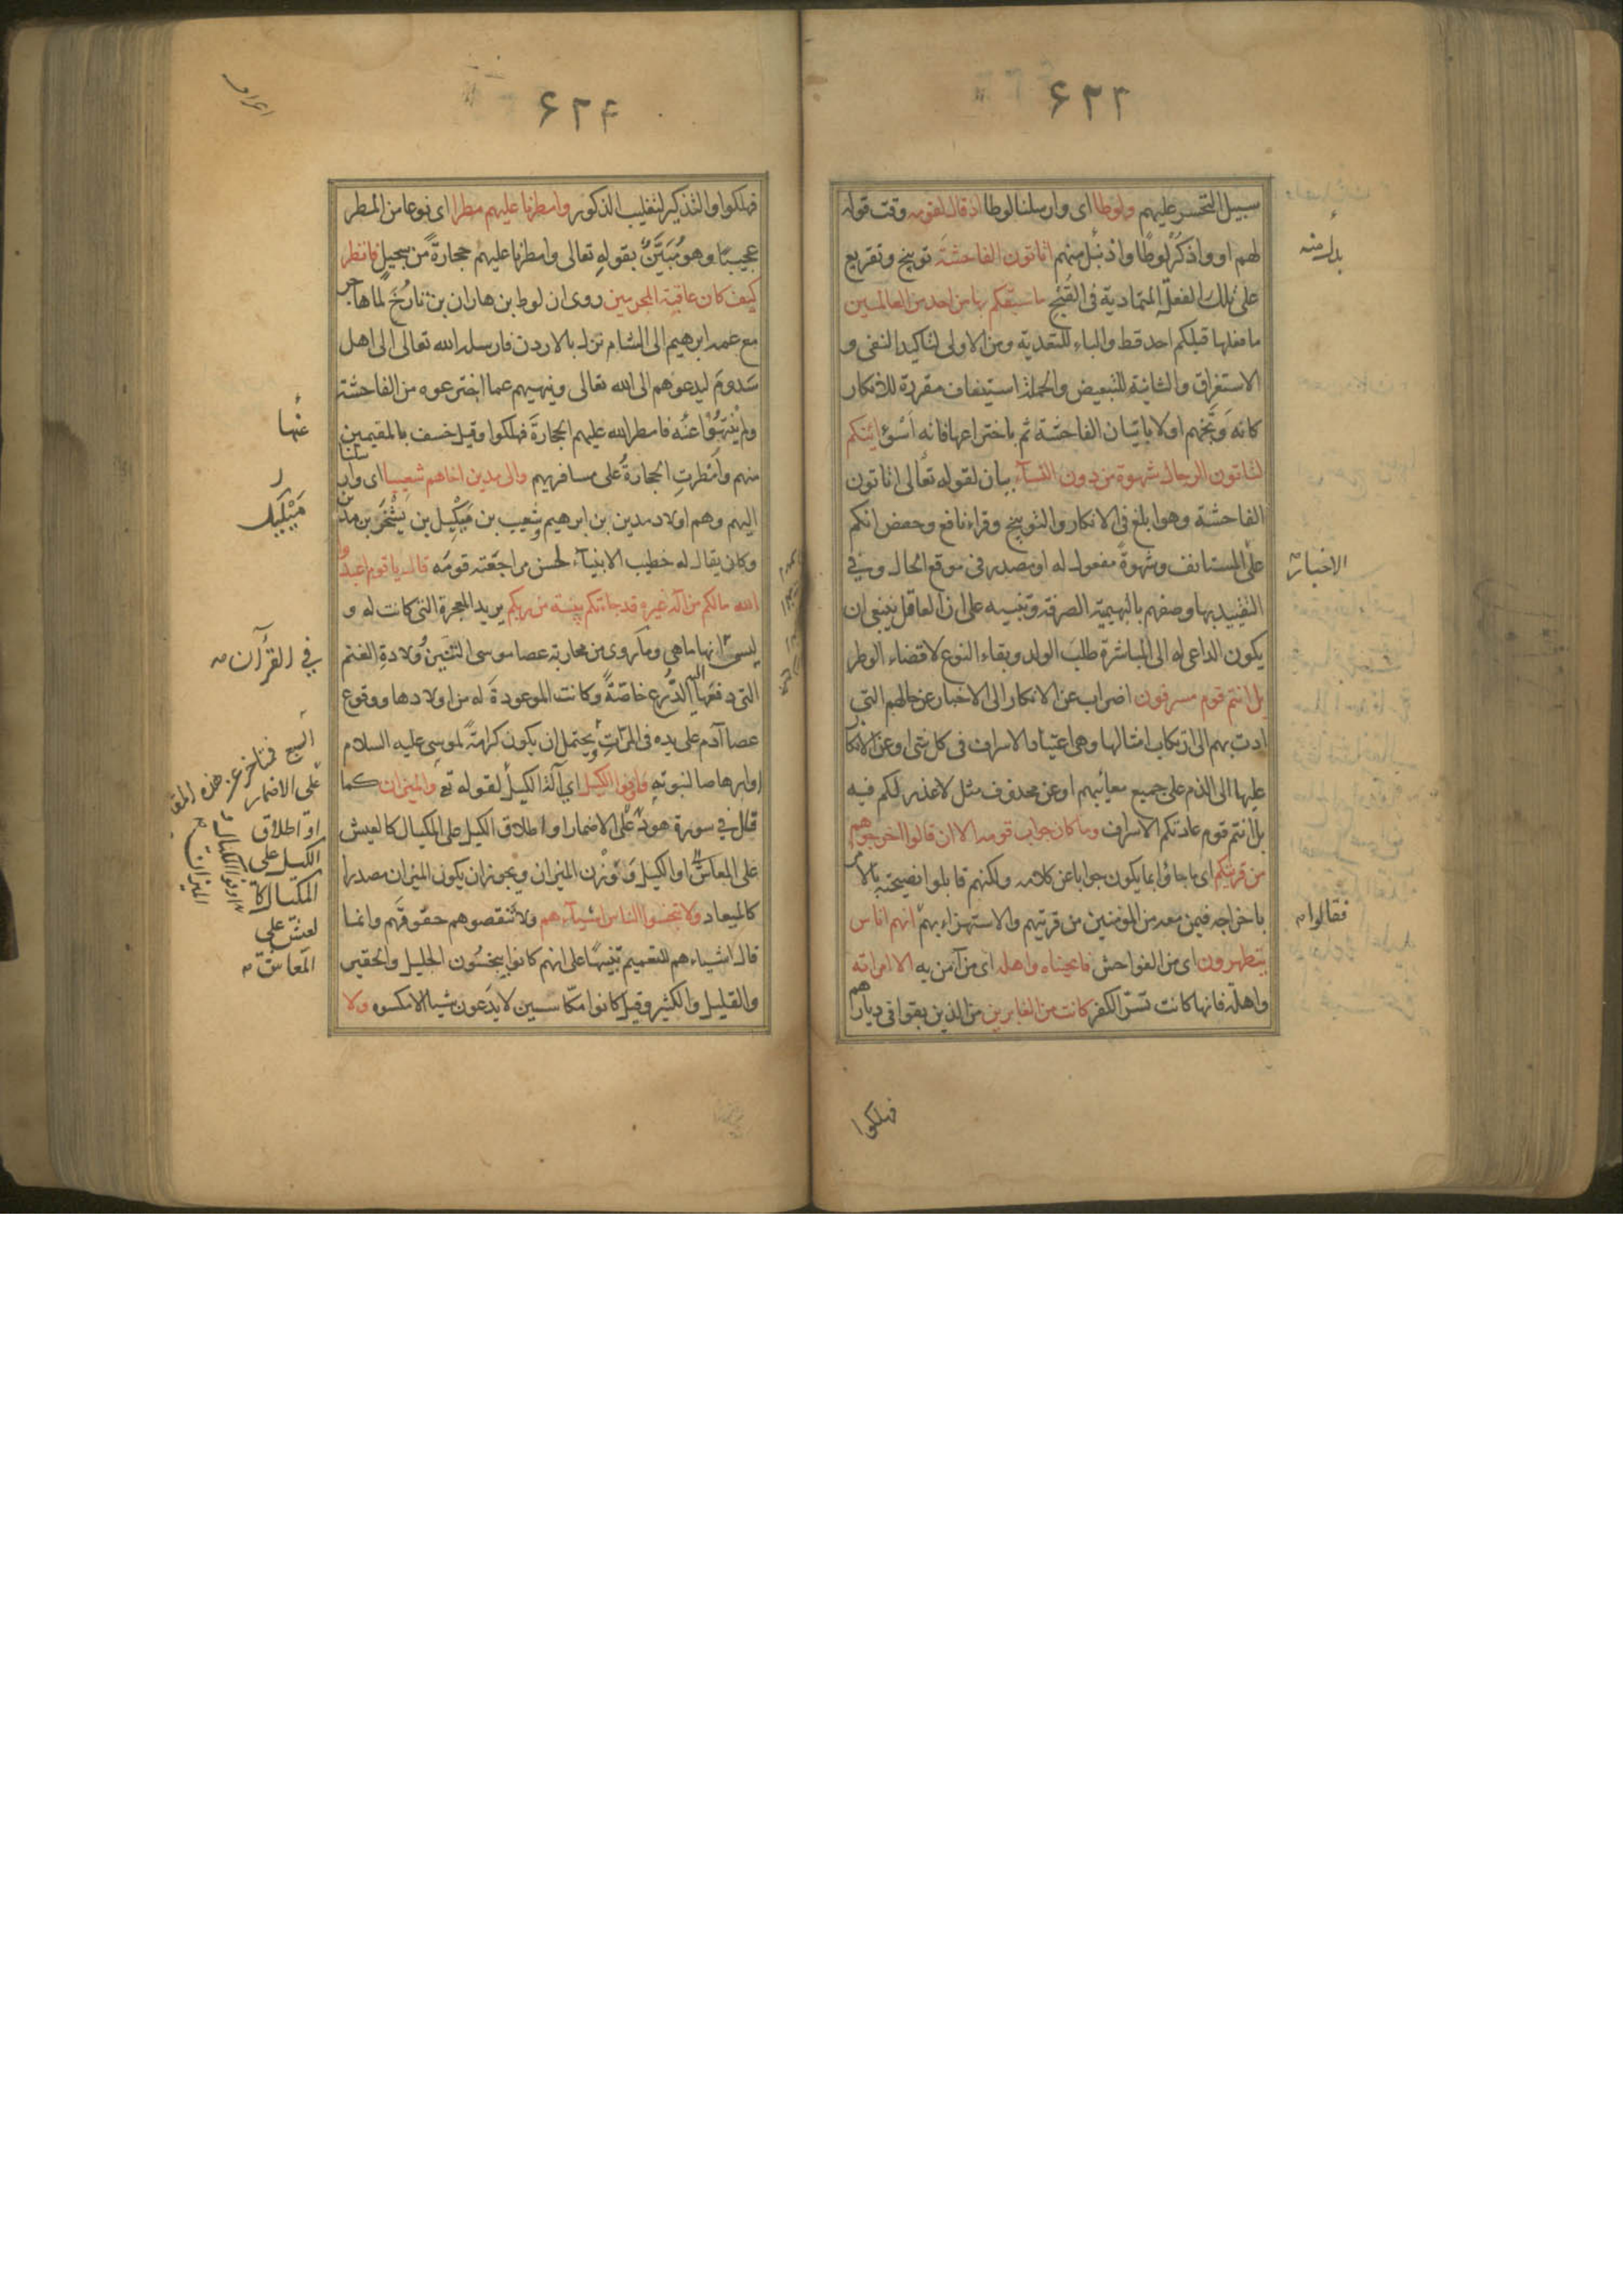 ۶۲۳
سبيل التحسر عليهم ولوطا اى وارسلنا لوطا اذ قال لقومه وقت قوله
لهم او واذكر لوطا واذ بدل منهم اتاتون الفاحشة توبيخ وتقريع
على تلك الفعلة المتمادية فى القبح ما سبقكم بها من احد من العالمين
ما فعلها قبلكم احد قط والباء للتعدية ومن الاولى لتاكيد النفى و
الاستغراق والثانية للتبعيض والجملة استيناف مقررة للانكار
كانه وبخهم اولا باتيان الفاحشة ثم باختراعها فانه اسوء ائنكم
لتاتون الرجال شهوة من دون النساء بيان لقوله تعالى اتاتون
الفاحشة وهو ابلغ فى الانكار والتوبيخ وقراء نافع وحفص انكم
على المستانف وشهوةً مفعول له او مصدر فى موقع الحال وفي
التقييد بها وصفهم بالبهيمية الصرفة وتنبيه على ان العاقل ينبغى ان
يكون الداعى له الى المباشرة طلب الولد وبقاء النوع لا قضاء الوطر
بل انتم قوم مسرفون اضراب عن الانكار الى الاخبار عن حالهم التي
ادت بهم الى ارتكاب امثالها وهى اعتياد الاسراف فى كل شى او عن الانكار
عليها الى الذم على جميع معائبهم او عن محذوف مثل لا عذر لكم فيه
بل انتم قوم عادتكم الاسراف وما كان جواب قومه الا ان قالوا اخرجوهم
من قريتكم اى ما جاؤا بما يكون جوابا عن كلامه ولكنهم قابلوا نصيحته بالامر
باخراجه فيمن معه من المؤمنين من قريتهم والاستهزاء بهم انهم اناس
يتطهرون اى من الفواحش فانجيناه واهله اى من آمن به الا امراته
واهلة فانها كانت تسر الكفر كانت من الغابرين من الذين بقوا فى ديارهم
بدل منه
الاخبار
فقالوا
فهلكوا
۶۲۴
اعراف
فهلكوا والتذكير لتغليب الذكور وامطرنا عليهم مطرا اى نوعا من المطر
عجيبا وهو مبيّن بقوله تعالى وامطرنا عليهم حجارةً من سجيل فانظر
كيف كان عاقبة المجرمين روى ان لوط بن هاران بن تارخ لما هاجر
مع عمه ابرهيم الى الشام نزل بالاردن فارسله الله تعالى الى اهل
سدوم ليدعوهم الى الله تعالى وينهيهم عما اخترعوه من الفاحشة
ولم ينتهوا عنه فامطر الله عليهم الحجارة فهلكوا وقيل خسف بالمقيمين
منهم وامطرت الحجارة على مسافريهم والى مدين اخاهم شعيبا اى وارسلنا
اليهم وهم اولاد مدين بن ابرهيم وشعيب بن ميكيل بن يشخر بن مدين
وكان يقال له خطيب الانبياء لحسن مراجعته قومه قال يا قوم اعبدوا
الله مالكم من اله غيره قد جاءتكم بينة من ربكم يريد المعجزة التى كانت له و
ليس انها ما هي وما روى من محاربة عصا موسى التنين وولادة الغنم
التى دفعها اليه الدرع خاصة وكانت الموعودة له من اولادها ووقوع
عصا آدم على يده فى المرات يحتمل ان يكون كرامة لموسى عليه السلام
او ارهاصا لنبوته فاوفوا الكيل اي آلة الكيل لقوله تع والميزان كما
قال في سورة هود على الاضمار او اطلاق الكيل على المكيال كالعيش
على المعاش او الكيل ووزن الميزان ويجوز ان يكون الميزان مصدرا
كالميعاد ولا تبخسوا الناس اشياءهم ولا تنقصوهم حقوقهم وانما
قال اشياءهم للتعميم تنبيها على انهم كانوا يبخسون الجليل والحقير
والقليل والكثير وقيل كانوا مكاسين لا يدعون شيا الا مكسوه ولا
عنها
ميكيل
في القرآن
على الاضمار
او اطلاق
الكيل على
المكيال كا
لعيش على
المعاش